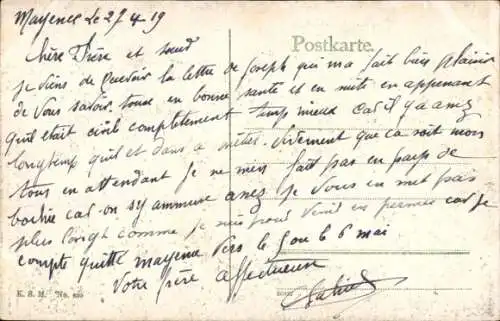 Mayence le 27/4/19
Postkarte.
Chère Frère et sœur
je viens de recevoir la lettre de joseph qui ma fait bien plaisir
de vous savoir tous en bonne santé et en suite en appenant
quil était civil completement temp mieux car il y a assez
longtemp quil et dans se métier. vivement que ca soit mon
tour en attendant je ne men fait pas en pays de
bochie car on sy ammuse assez je vous en met pas
plus longt comme je pour venir en permes car je
compte quitté mayence vers le 5 ou le 6 mai
Votre frère affectueux
K. S. M. No. 899